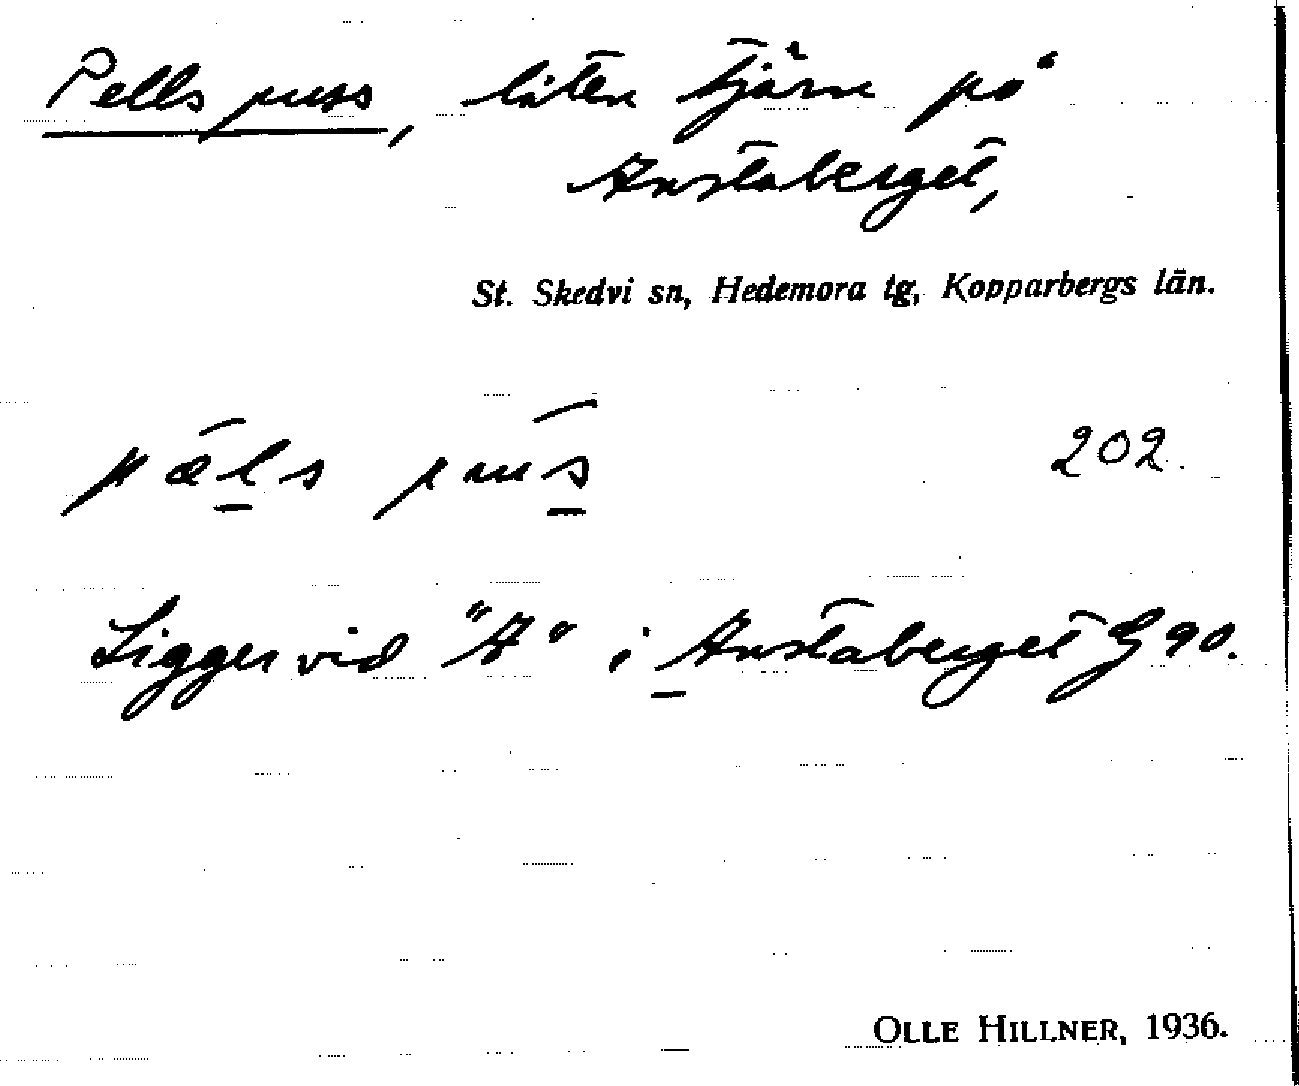 Pells puss, liten tjärn på
Anstaberget,
St. Skedvi sn, Hedemora tg, Kopparbergs län.
pæls pus 202.
Ligger vid "A" i Anstaberget G 90.
OLLE HILLNER, 1936.